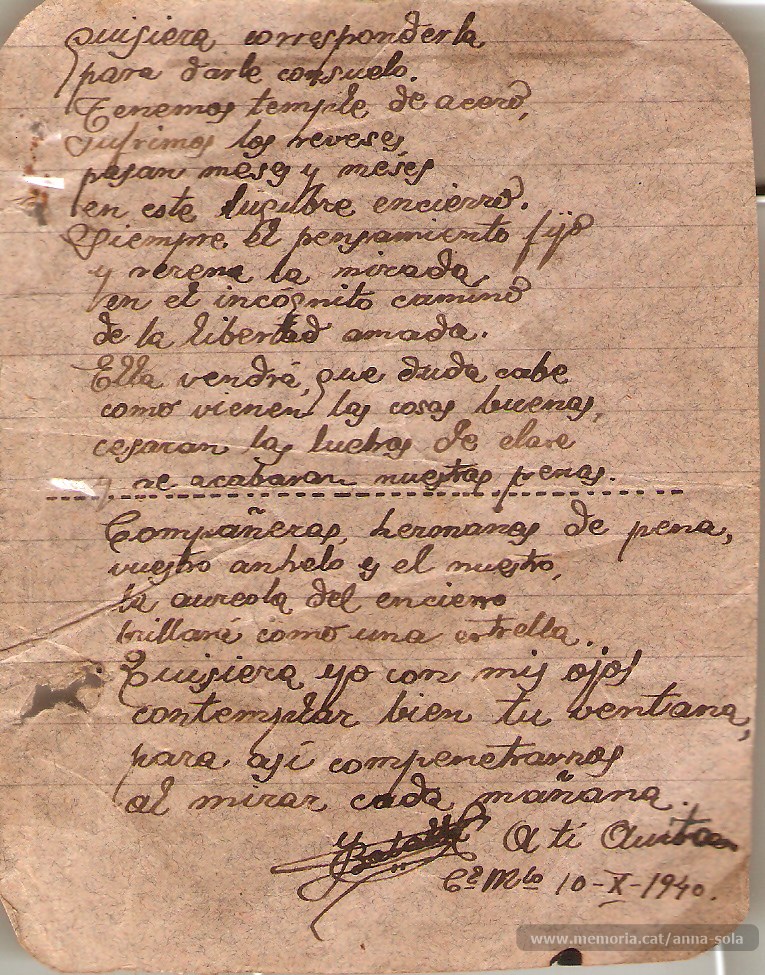 Quisiera corresponderla
para darle consuelo.
Tenemos temple de acero,
sufrimos los reveses,
pasan meses y meses
en este lugubre encierro.
Siempre el pensamiento fijo
y serena la mirada
en el incógnito camino
de la libertad amada.
Ella vendrá, que duda cabe
como vienen las cosas buenas,
cesaran las luchas de clase
y se acabaran nuestras penas.
Compañeras, hermanas de pena,
vuestro anhelo y el nuestro,
la aureola del encierro
brillará como una estrella.
Quisiera yo con mis ojos
contemplar bien tu ventana,
para asi compenetrarnos
al mirar cada mañana.
A ti Anita
10-X-1940.
www.memoria.cat/anna-sola